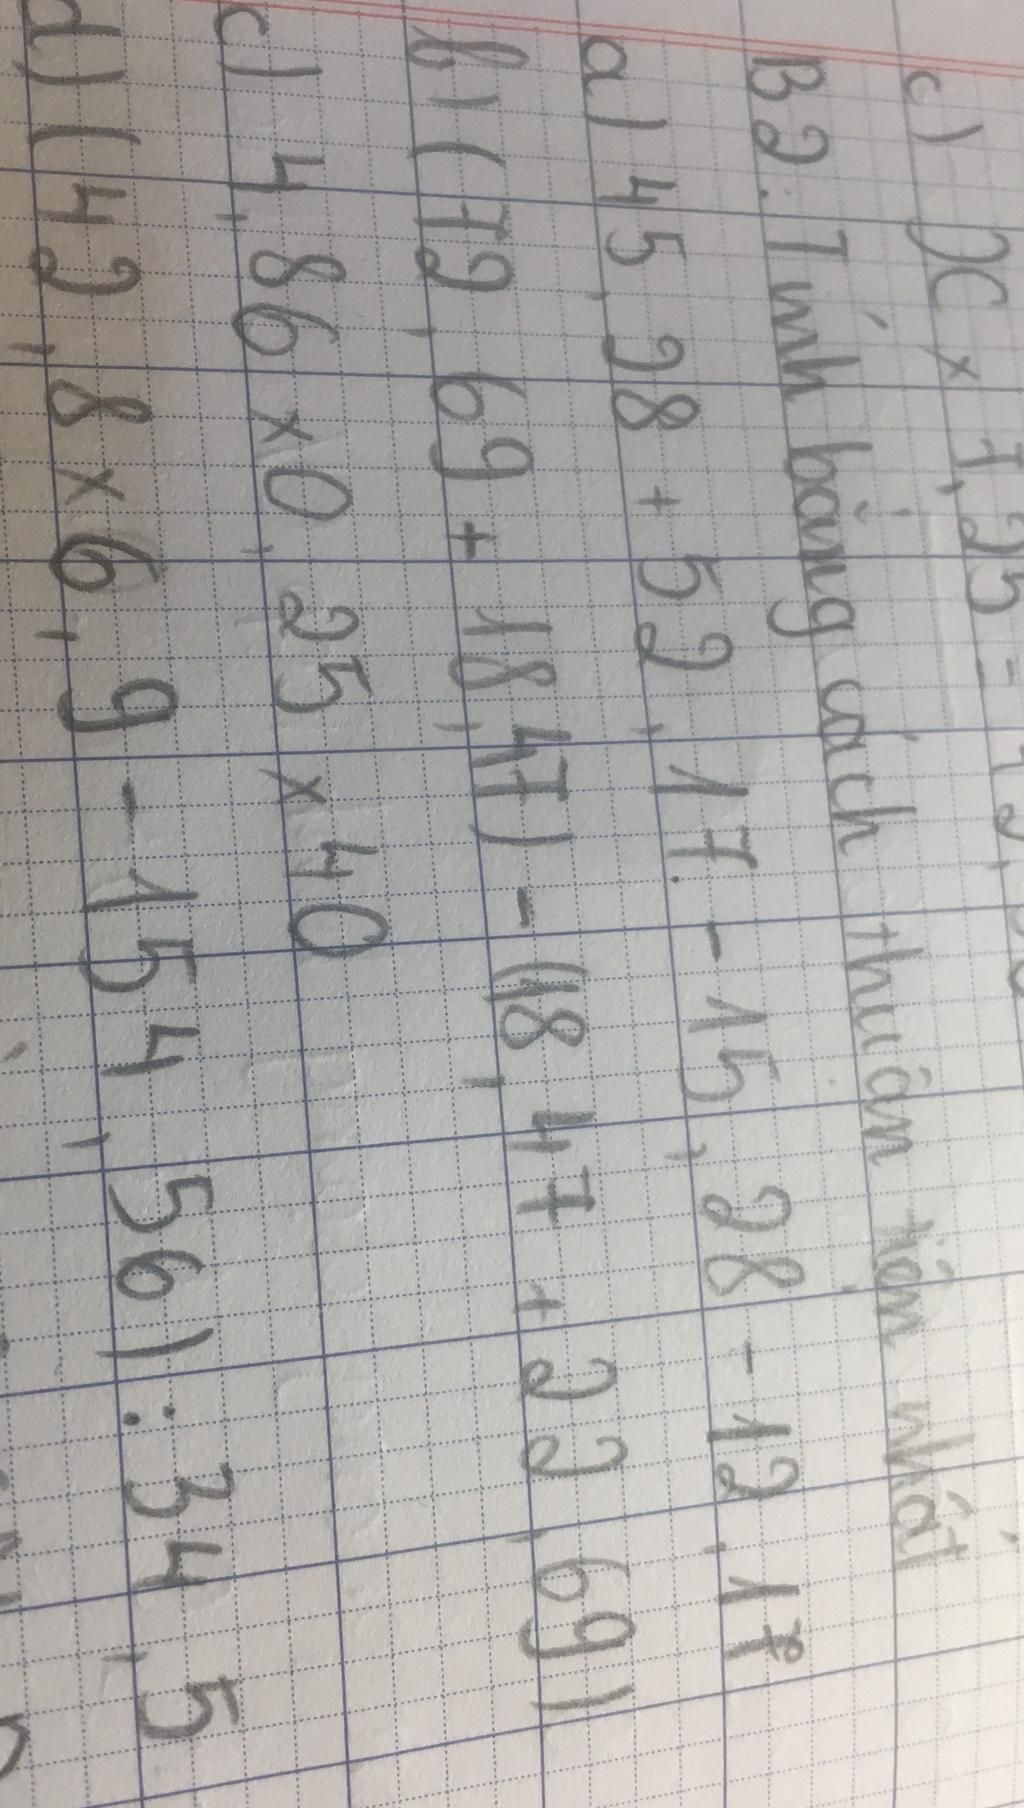 c) X x 1,25 =
B2: Tính bằng cách thuận tiện nhất
a) 45,28 + 52,17 - 15,28 - 12,17
b) (72,69 + 18,47) - (18,47 + 22,69)
c) 4,86 x 0,25 x 40
d) (42,8 x 6,9 - 154,56) : 34,5